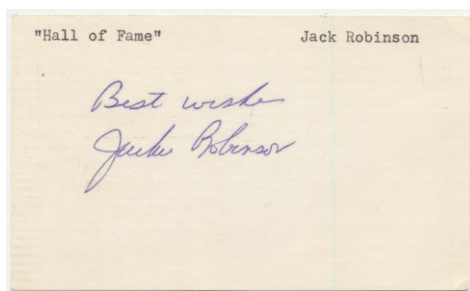 "Hall of Fame" Jack Robinson
Best wishes
Jackie Robinson